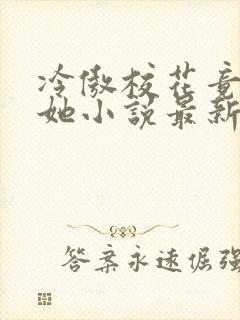 冷傲校花竟
她小說最新
答案永遠倔強